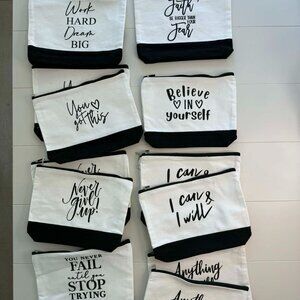 Work
HARD
Dream
BIG
Faith
BE BIGGER THAN YOUR
Fear
You
got this
Believe
IN
yourself
Never
give
up!
I can &
I can &
I will
YOU NEVER
FAIL
until you
STOP
TRYING
Anything
Anything